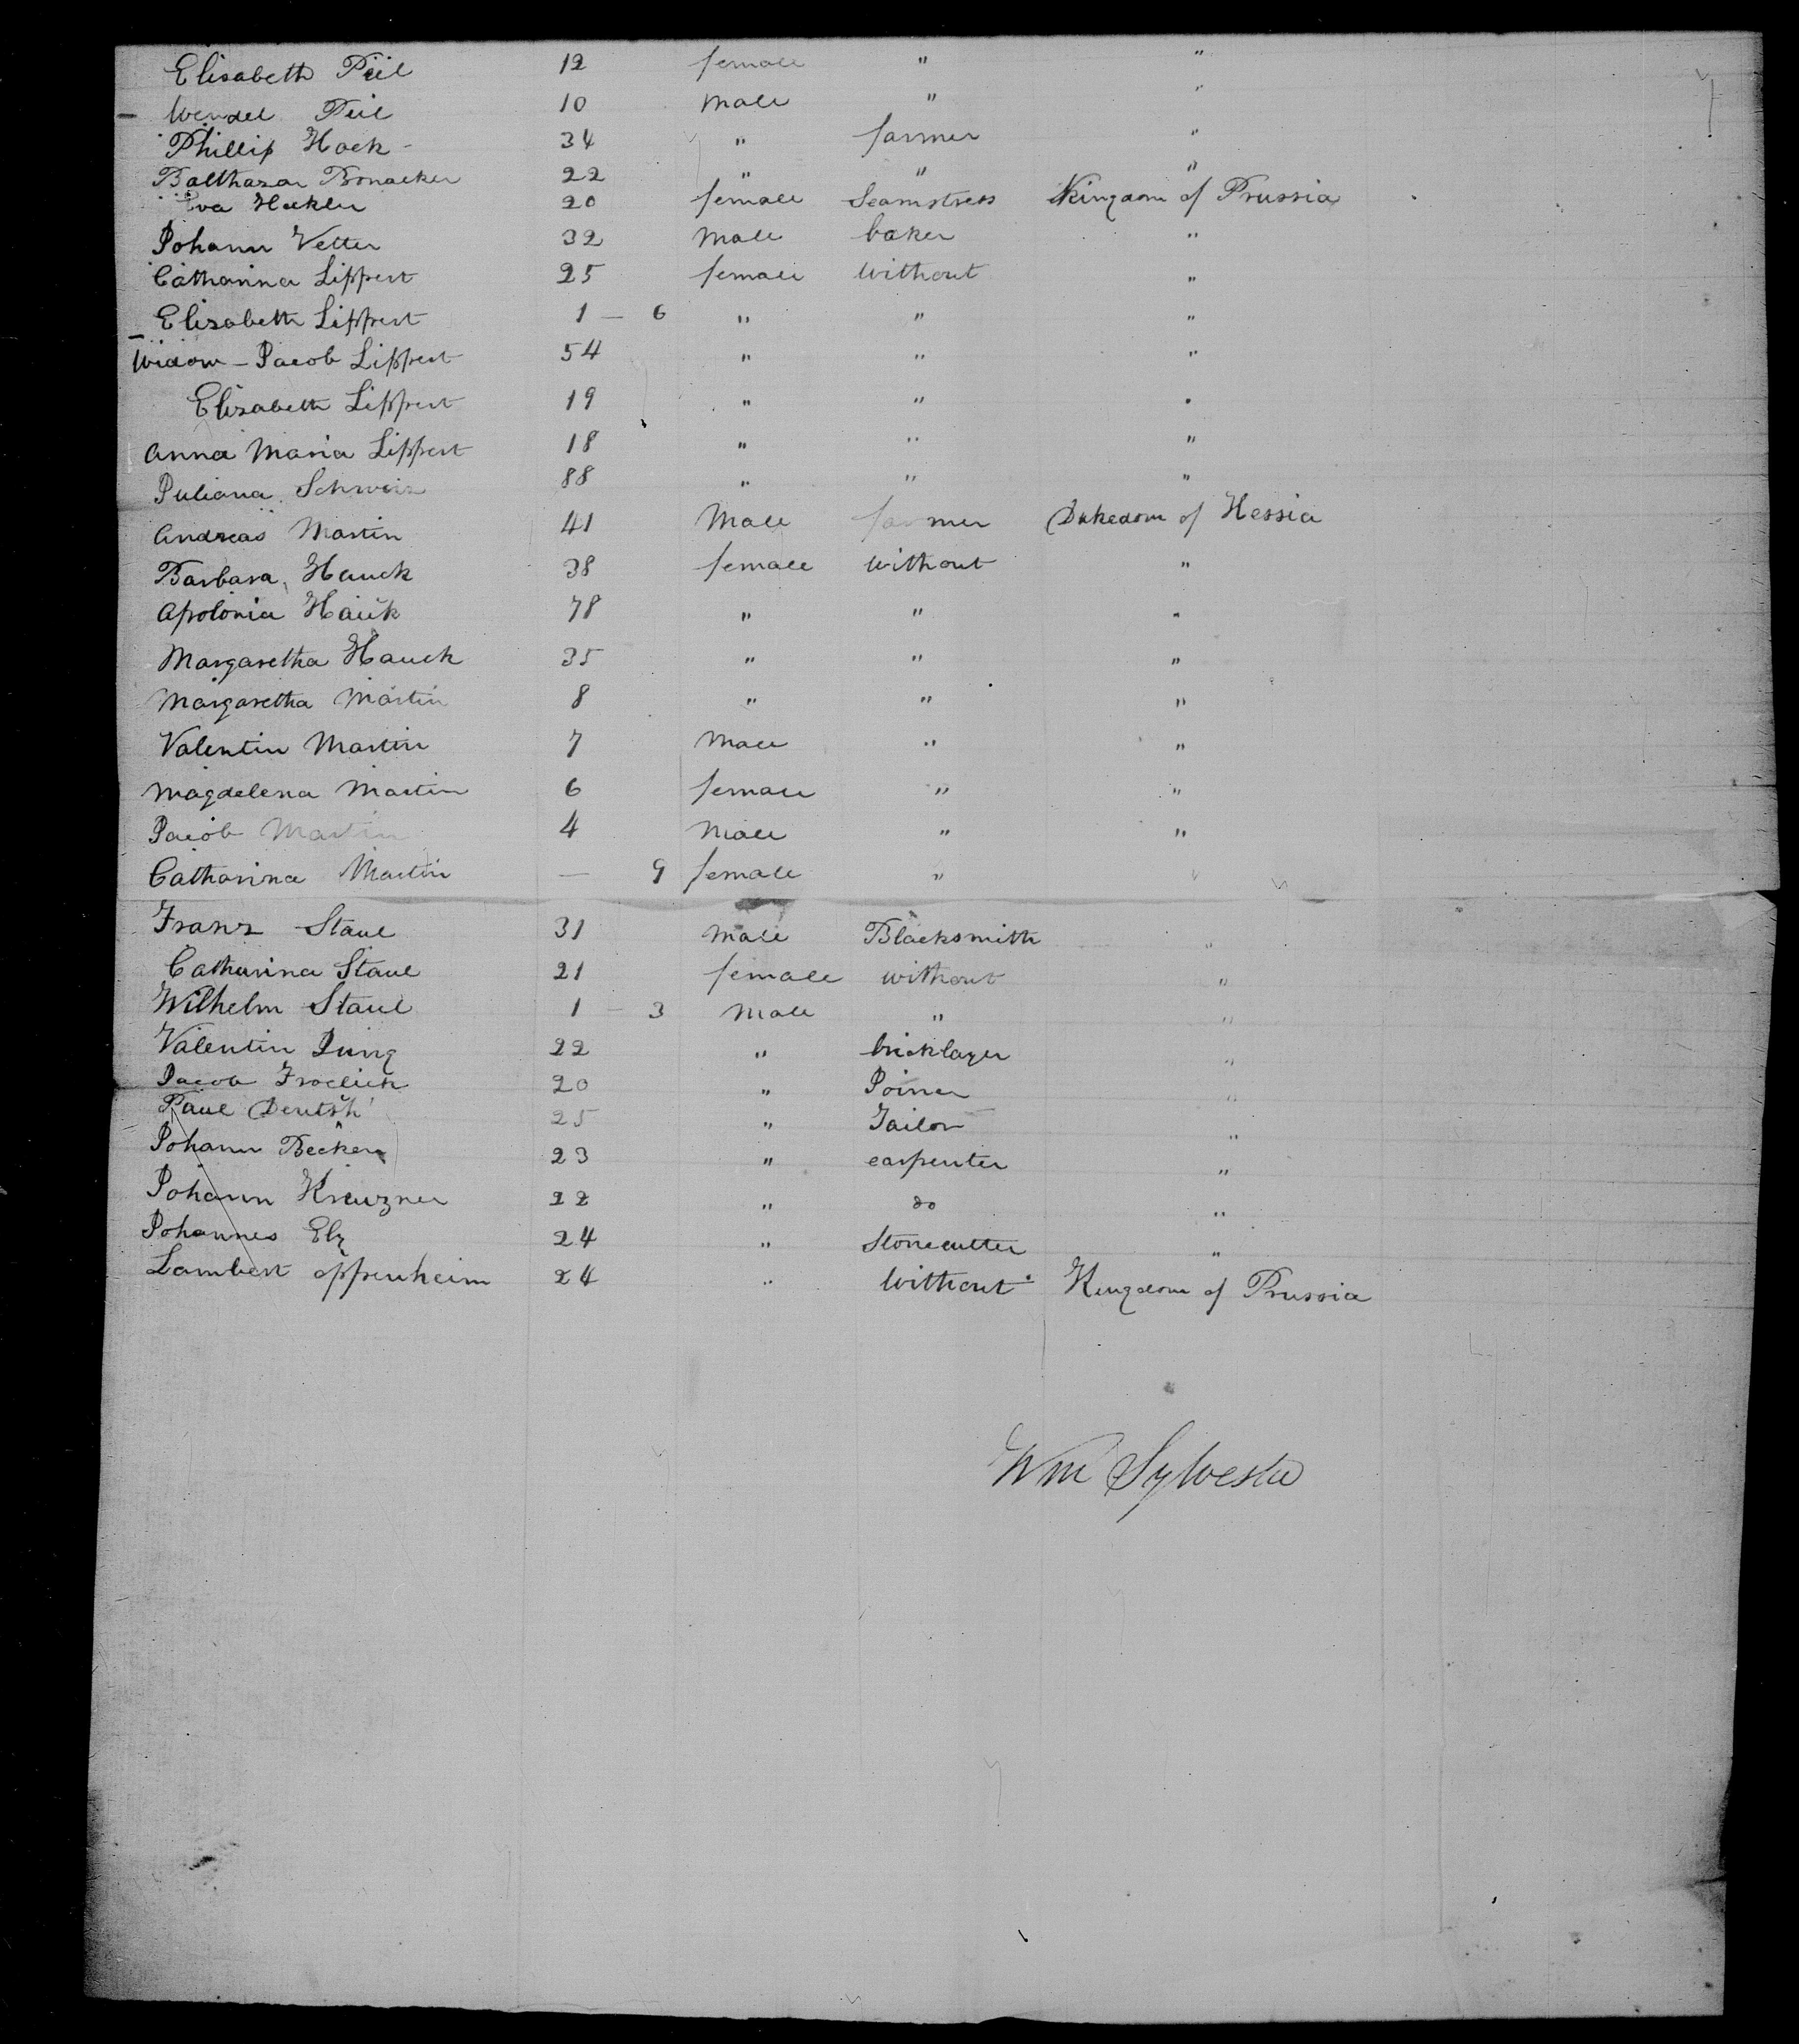 Elisabeth Piel 12 female " "
Wendel Piel 10 Male " "
Phillip Hock 34 " farmer "
Balthasar Bonacker 22 " " "
Eva Heckler 20 female Seamstress Kingdom of Prussia
Johann Vetter 32 Male baker "
Catharina Lippert 25 female without "
Elisabeth Lippert 1 — 6 " " "
Widow – Jacob Lippert 54 " " "
Elisabeth Lippert 19 " " "
Anna Maria Lippert 18 " " "
Juliana 88 " " "
Andreas Martin 41 Male farmer Dukedom of Hessia
Barbara Hauck 38 female without "
Apolonia Hauck 78 " " "
Margaretha Hauck 35 " " "
Margaretha Martin 8 " " "
Valentin Martin 7 Male " "
Magdelena Martin 6 female " "
Jacob Martin 4 Male " "
Catharina Martin — 9 female " "
Franz Staul 31 Male Blacksmith "
Catharina Staul 21 female without "
Wilhelm Staul 1 – 3 Male " "
Valentin Jung 22 " bricklayer "
Jacob Froelich 20 " Joiner "
Paul Deutsh 25 " Tailor "
Johann Becker 23 " carpenter "
Johann Kreuzner 22 " do "
Johannes Elz 24 " Stonecutter "
Lambert Oppenheim 24 " Without Kingdom of Prussia
Wm Sylvester